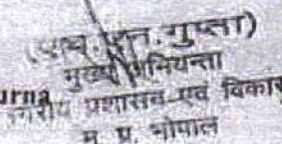 (एच.एन.गुप्ता)
मुख्य अभियन्ता
urna
नगरीय प्रशासन एवं विकास
म. प्र. भोपाल